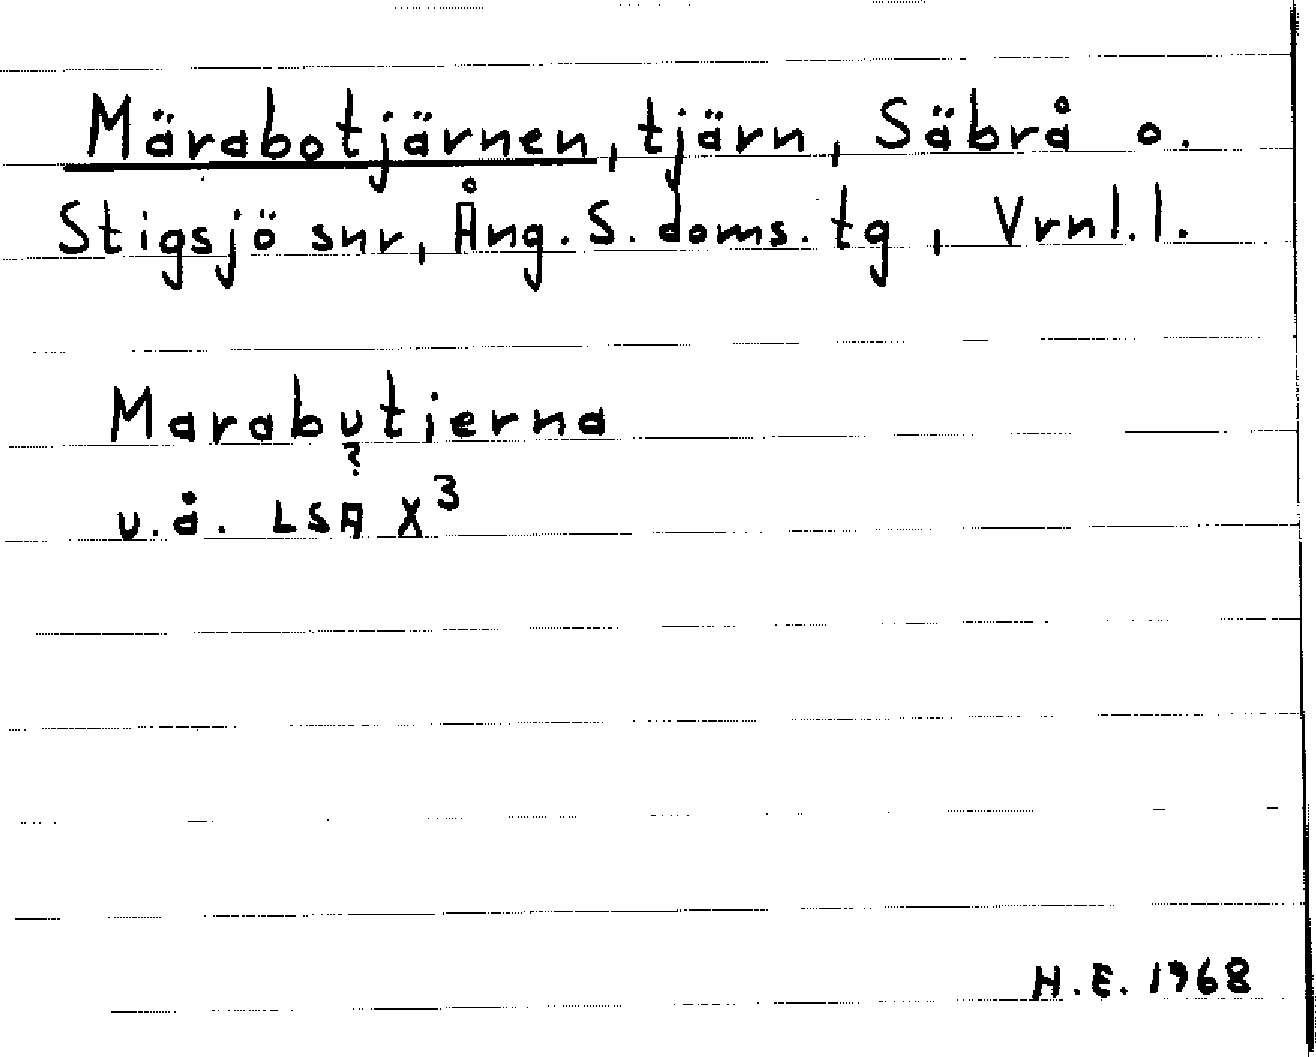 Märabotjärnen, tjärn, Säbrå o.
Stigsjö snr, Ång. S. doms. tg, Vrnl. l.
Marabutjerna
?
u.å. LSA X³
H.E. 1968